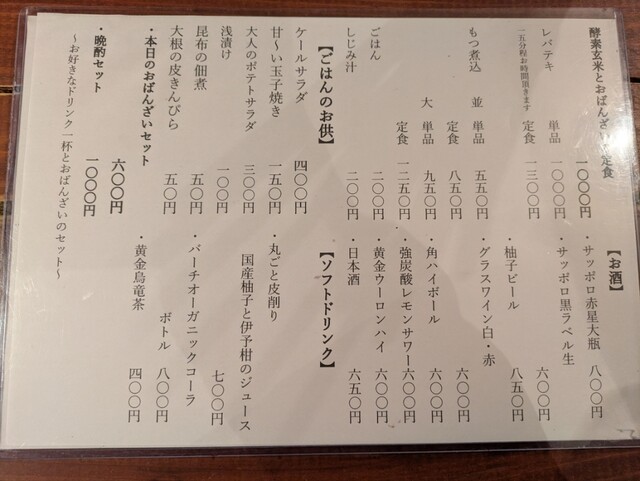 酵素玄米とおばんざい定食 一〇〇〇円
レバテキ 単品 一〇〇〇円
一五分程お時間頂きます 定食 一三〇〇円
もつ煮込 並 単品 五五〇円
定食 八五〇円
大 単品 九五〇円
定食 一二五〇円
ごはん 二〇〇円
しじみ汁 二〇〇円
【ごはんのお供】
ケールサラダ 四〇〇円
甘〜い玉子焼き 一五〇円
大人のポテトサラダ 三〇〇円
浅漬け 一〇〇円
昆布の佃煮 五〇円
大根の皮きんぴら 五〇円
・本日のおばんざいセット 六〇〇円
・晩酌セット 一〇〇〇円
〜お好きなドリンク一杯とおばんざいのセット〜
【お酒】
・サッポロ赤星大瓶 八〇〇円
・サッポロ黒ラベル生 六〇〇円
・柚子ビール 八五〇円
・グラスワイン白・赤 六〇〇円
・角ハイボール 六〇〇円
・強炭酸レモンサワー 六〇〇円
・黄金ウーロンハイ 六〇〇円
・日本酒 六五〇円
【ソフトドリンク】
・丸ごと皮削り
国産柚子と伊予柑のジュース 七〇〇円
・バーチオーガニックコーラ
ボトル 八〇〇円
・黄金烏竜茶 四〇〇円